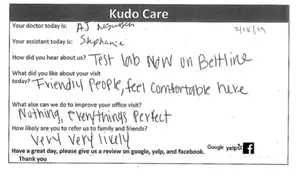 Kudo Care
Your doctor today is: AJ Nguyen 7/28/19
Your assistant today is: Stephanie
How did you hear about us? Test lab Now on Beltline
What did you like about your visit
today? Friendly People, feel comfortable here
What else can we do to improve your office visit?
Nothing, everythings perfect
How likely are you to refer us to family and friends?
Very very likely
Google yelp f
Have a great day, please give us a review on google, yelp, and facebook.
Thank you